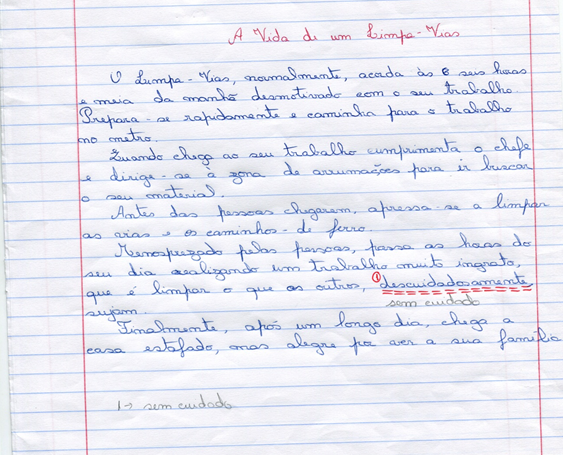 A Vida de um Limpa-Vias
O Limpa-Vias, normalmente, acorda às 6 seis horas
e meia da manhã desmotivado com o seu trabalho.
Prepara-se rapidamente e caminha para o trabalho
no metro.
Quando chega ao seu trabalho cumprimenta o chefe
e dirige-se à zona de arrumações para ir buscar
o seu material.
Antes das pessoas chegarem, apressa-se a limpar
as vias e os caminhos-de ferro.
Menosprezado pelas pessoas, passa as horas do
seu dia realizando um trabalho muito ingrato,
que é limpar o que os outros, ① descuidadosamente
sem cuidado
sujam.
Finalmente, após um longo dia, chega a
casa estafado, mas alegre por ver a sua família
1-> sem cuidado